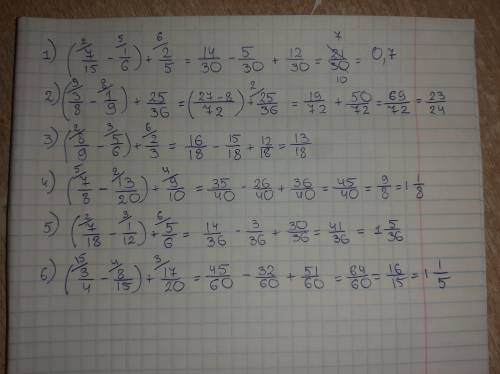 1) (7/15 - 1/6) + 2/5 = 14/30 - 5/30 + 12/30 = 21/30 = 7/10 = 0,7
2) (3/8 - 1/9) + 25/36 = (27-8/72) + 25/36 = 19/72 + 50/72 = 69/72 = 23/24
3) (8/9 - 5/6) + 2/3 = 16/18 - 15/18 + 12/18 = 13/18
4) (7/8 - 13/20) + 9/10 = 35/40 - 26/40 + 36/40 = 45/40 = 9/8 = 1 1/8
5) (7/18 - 1/12) + 5/6 = 14/36 - 3/36 + 30/36 = 41/36 = 1 5/36
6) (3/4 - 8/15) + 17/20 = 45/60 - 32/60 + 51/60 = 64/60 = 16/15 = 1 1/5